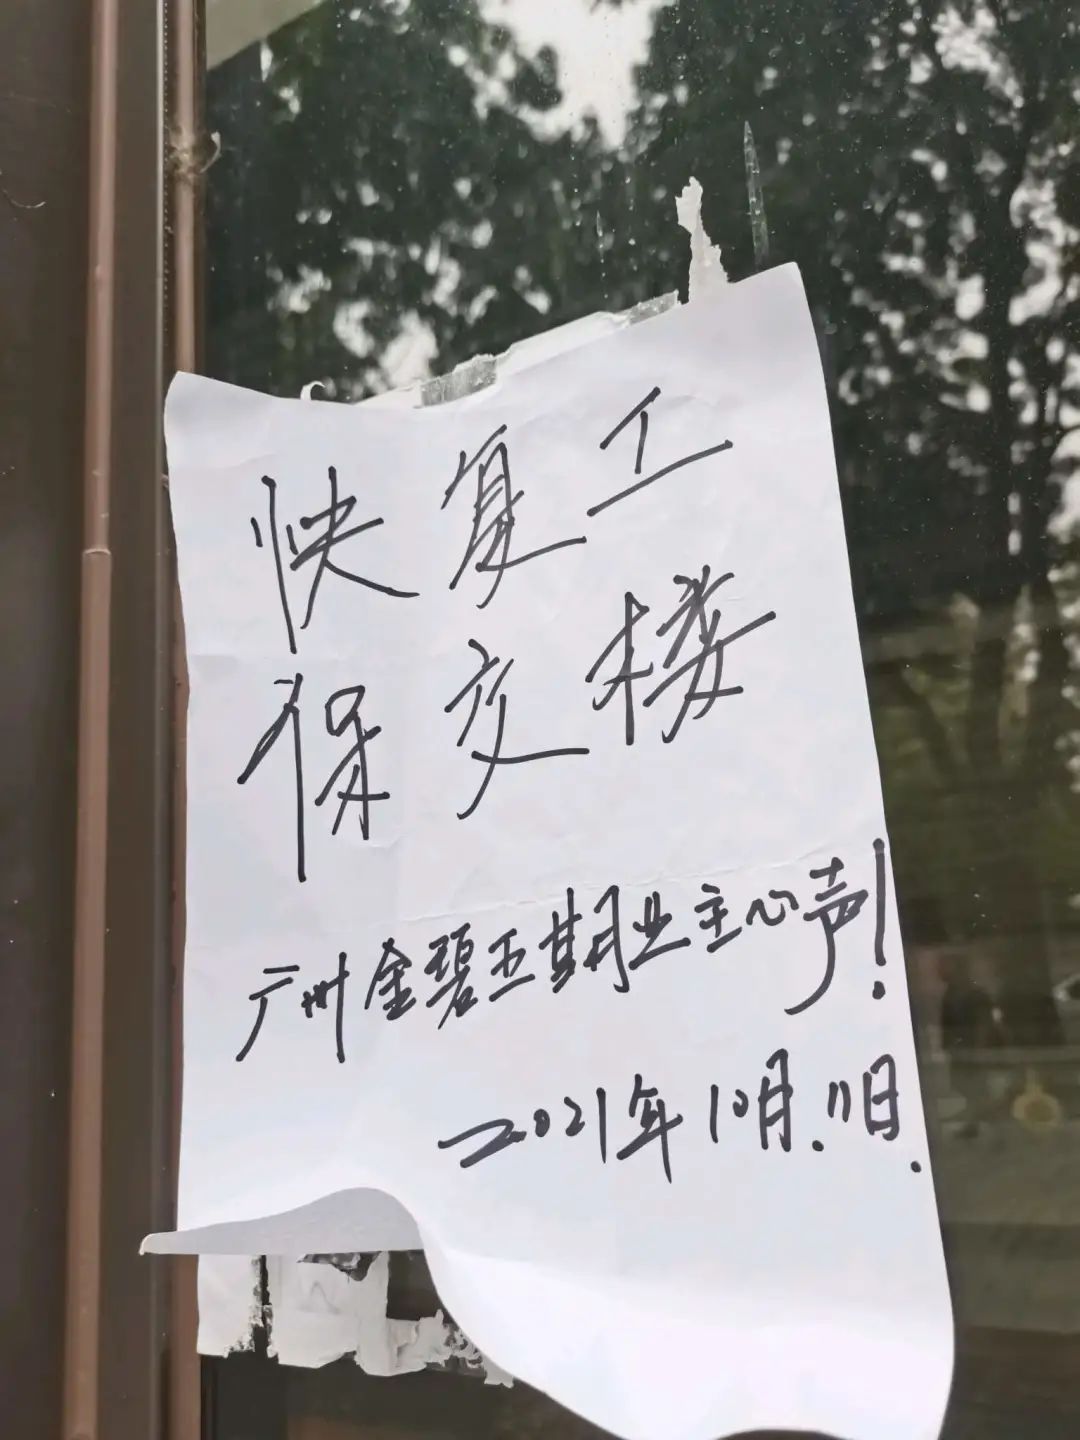 快复工
保交楼
广州金碧五期业主心声!
2021年10月.11日.